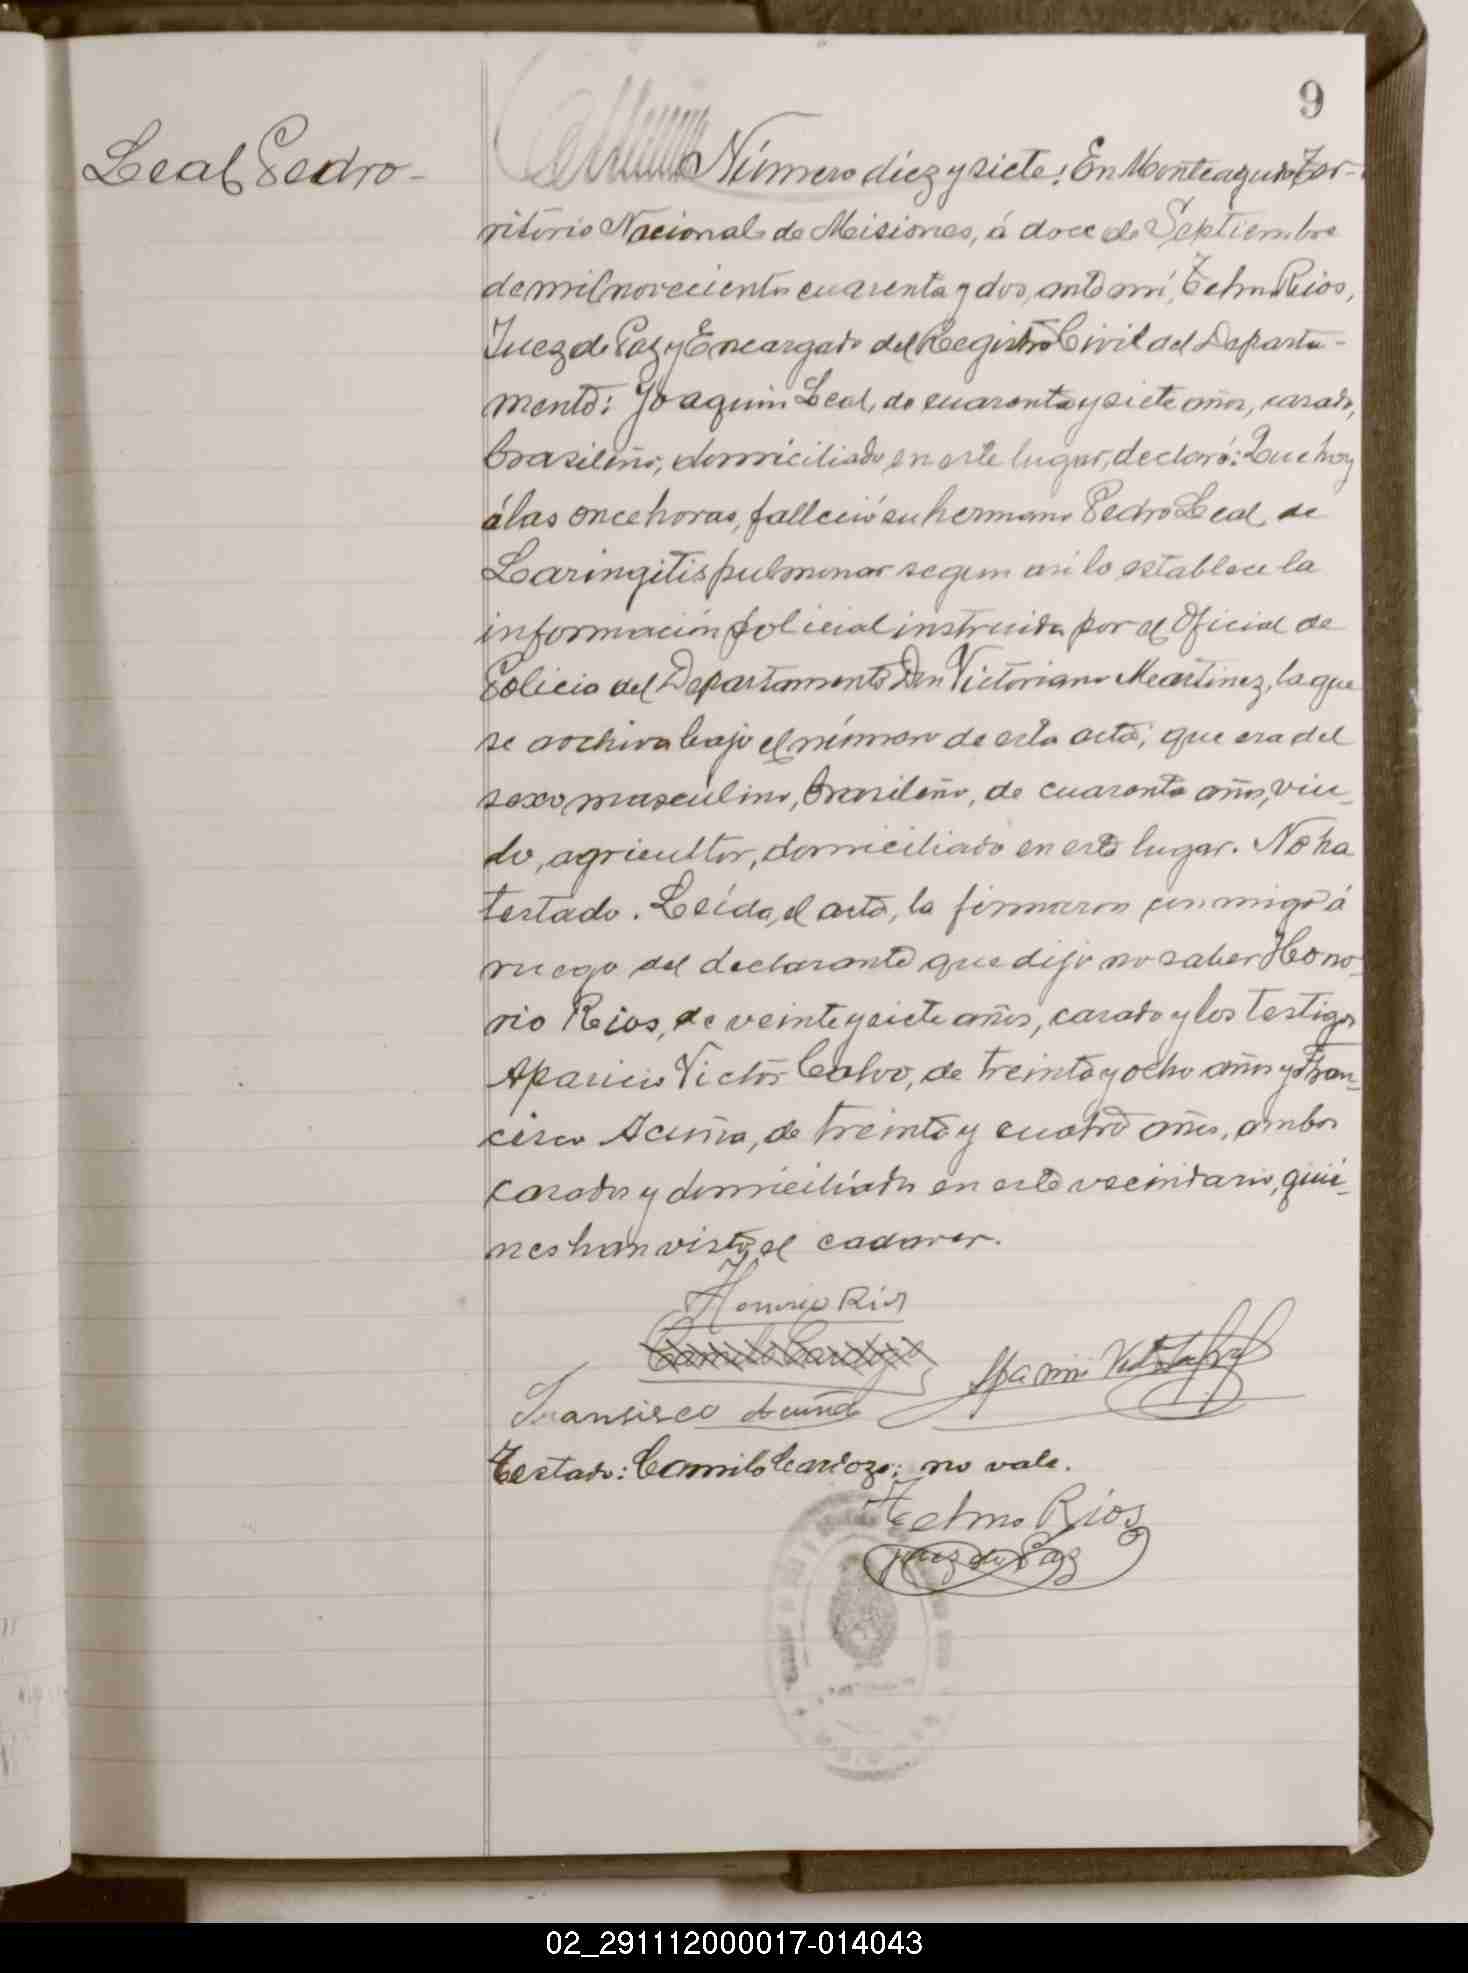 9
Leal Pedro-
Número diez y siete: En Monteagudo Ter-
ritorio Nacional de Misiones, á doce de Septiembre
de mil novecientos cuarenta y dos, ante mí, Telmo Rios,
Juez de Paz y Encargado del Registro Civil del Departa-
mento: Joaquin Leal, de cuarenta y siete años, casado,
brasileño, domiciliado en este lugar, declaró: Que hoy
á las once horas, falleció su hermano Pedro Leal, de
Laringitis pulmonar segun asi lo establece la
información policial instruida por el Oficial de
Policia del Departamento Don Victoriano Martinez, la que
se archiva bajo el número de esta acta; que era del
sexo masculino, brasileño, de cuarenta años, viu-
do, agricultor, domiciliado en este lugar. No ha
testado. Leída el acta, la firmaron conmigo á
ruego del declarante que dijo no saber Hono-
rio Rios, de veinte y siete años, casado y los testigos
Aparicio Victor Calvo, de treinta y ocho años y Fran-
cisco Acuña, de treinta y cuatro años, ambos
casados y domiciliados en este vecindario, quie-
nes han visto el cadaver.
Honorio Rios
Camilo Cardozo
Fransisco Acuña
Testado: Camilo Cardozo: no vale.
Telmo Rios
Juez de Paz
02_291112000017-014043